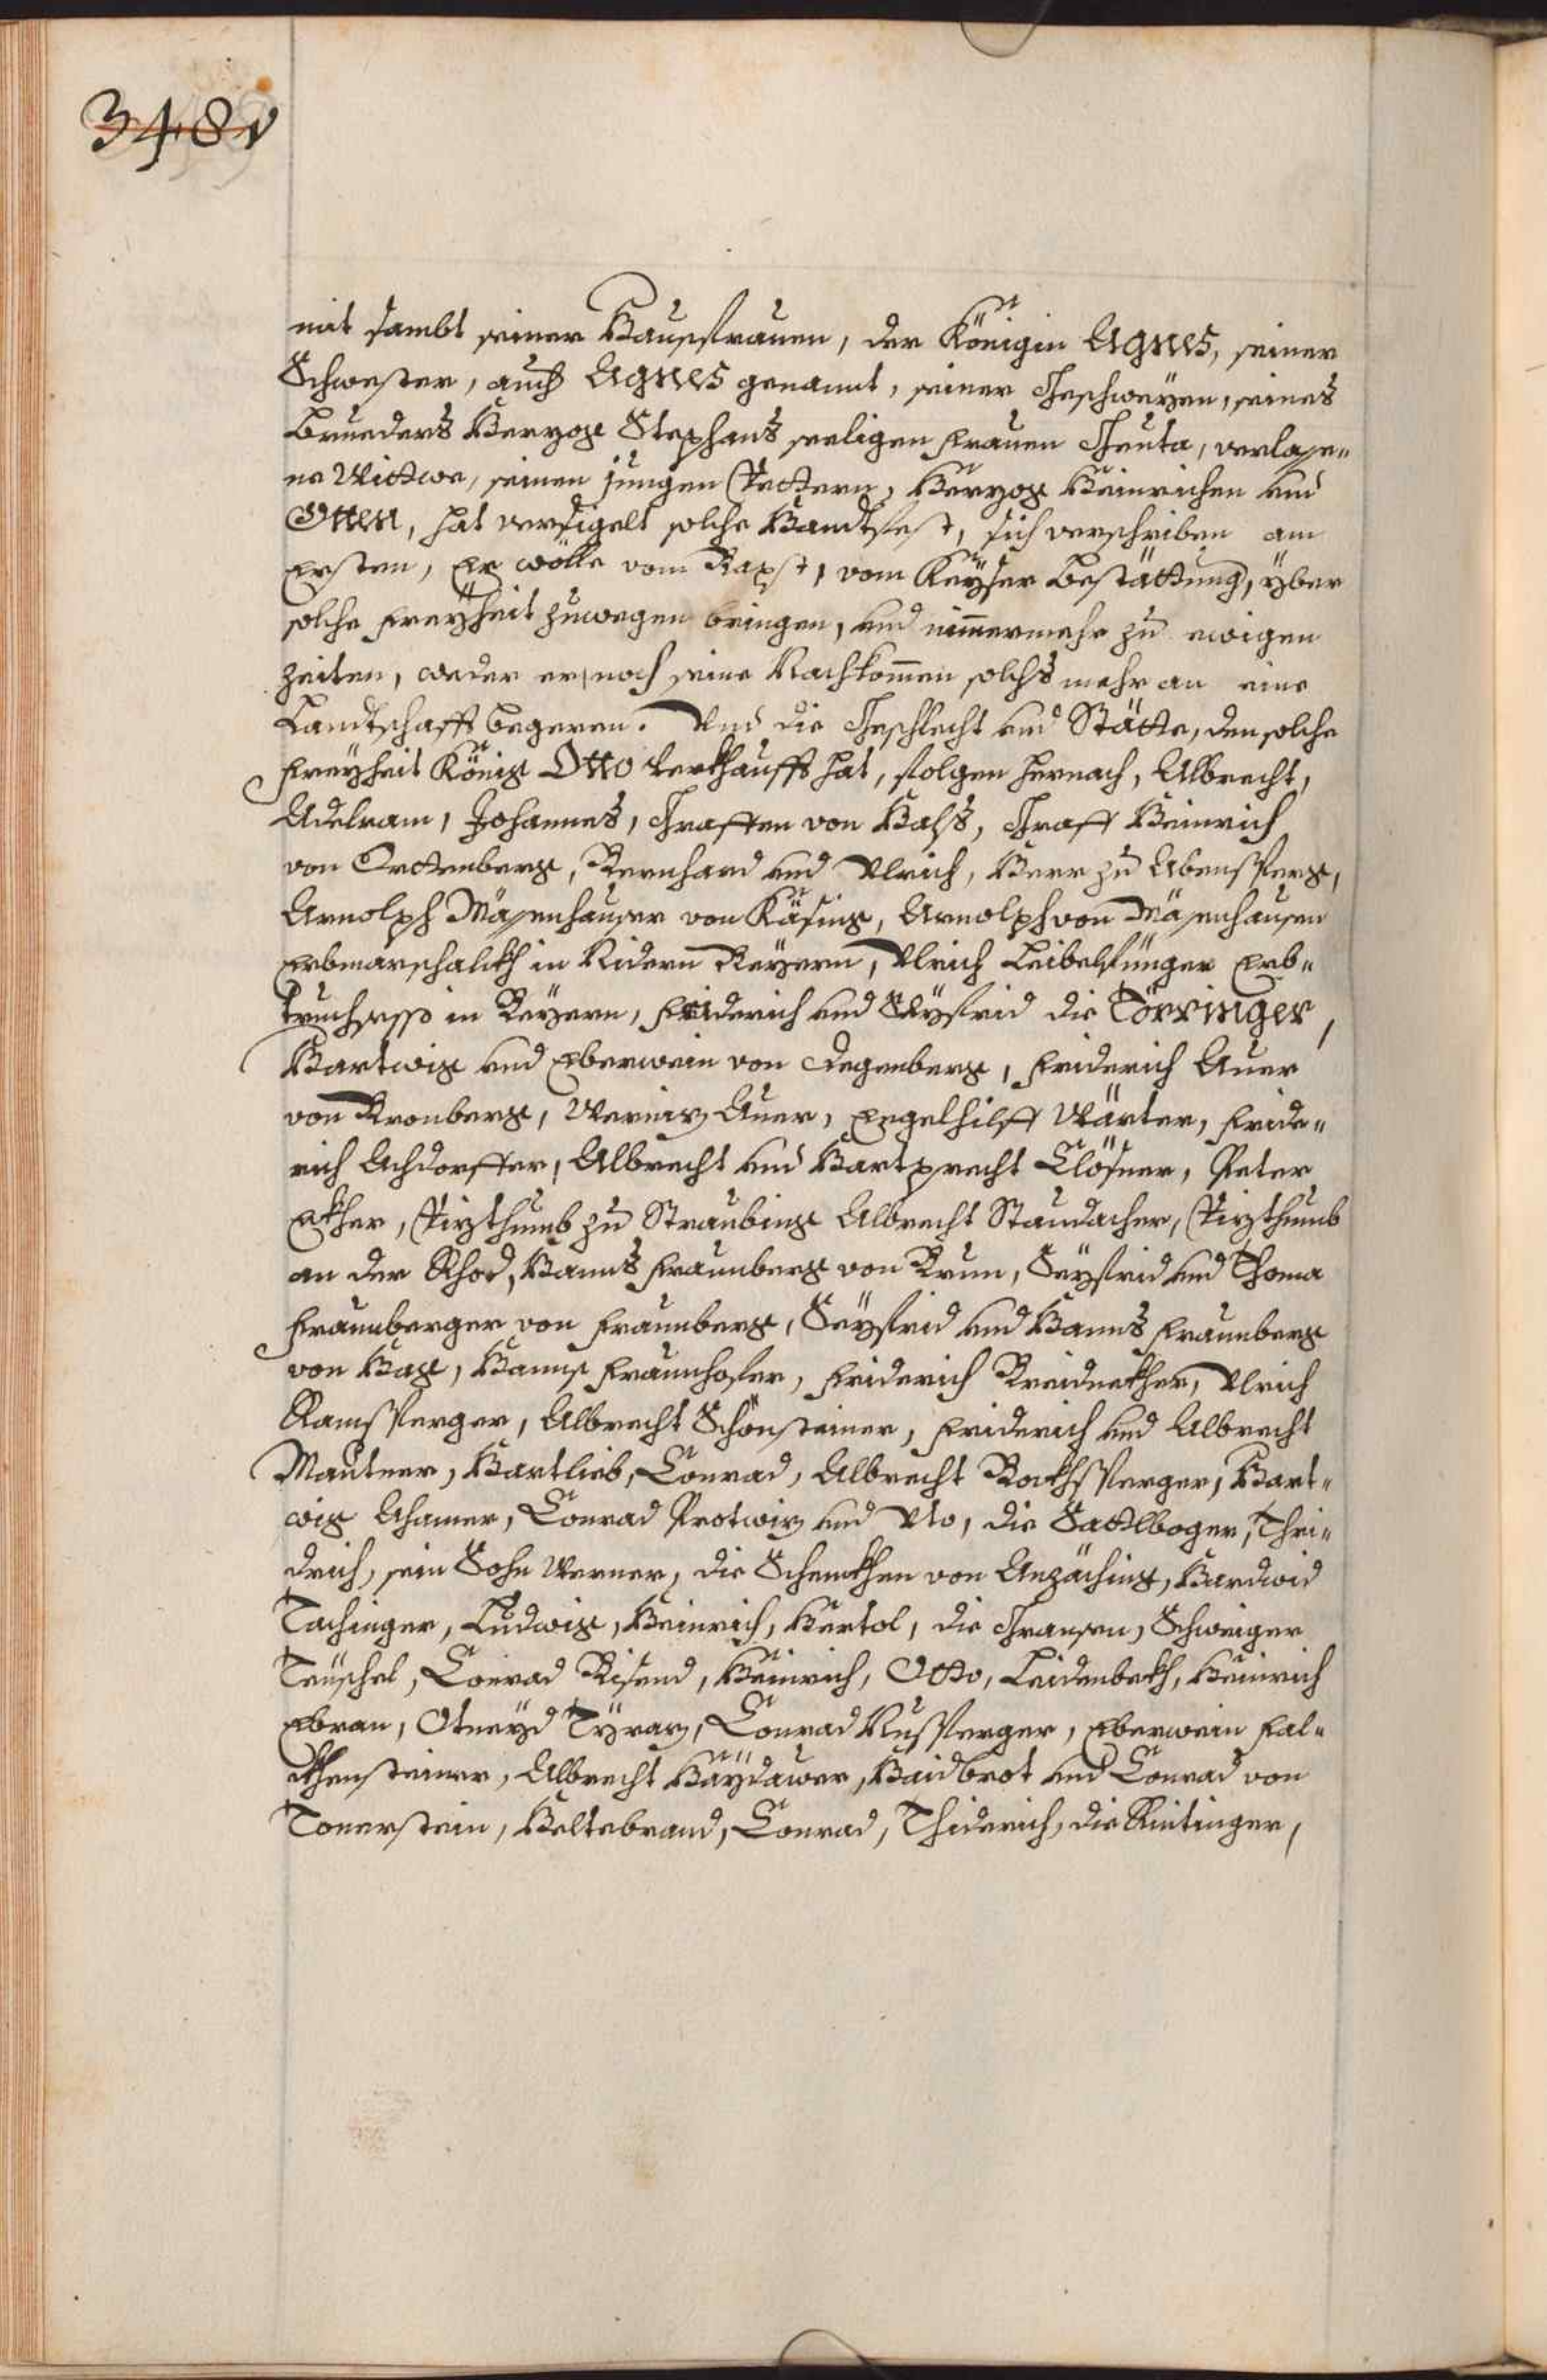 348v
mit sambt seiner Hausfrauen, der Königin Agnes, seiner
Schwester, auch Agnes genannt, seiner Geschweyen, seines
Brueders Herzog Stephans seeligen frauen Geuta, verlasse„
ne Wittwe, seinen jungen Vettern, Herzog Heinrichen und
Otten, hat versigelt solche Handtfest, sich verschriben am
ersten, Er wölle vom Bapst, vom Keyser Bestättung, über
solche Freyheit zuwegen bringen, und nimmermehr zu ewigen
zeiten, weder er, noch seine Nachkommen solchs mehr an eine
Landtschafft begeren. Und die Geschlecht und Stätte, den solche
Freyheit König Otto verkhaufft hat, folgen hernach, Albrecht,
Adelram, Johannes, Graffen von Hals, Graff Heinrich
von Orttenberg, Bernhard und Ulrich, Herr zu Abensperg,
Arnolph Mässenhauser von Käsing, Arnolph von Mässenhausen
Erbmarschalckh in Nidern Beyern, Ulrich Leibelfünger Erb„
truchsess in Beyern, Friderich und Seyfrid die Törringer,
Hartwig und Eberwein von Degenberg, Friderich Auer
von Bronberg, Werniz Auer, Engelhilff Wärter, Fride„
rich Achdorffer, Albrecht und Hartprecht Clösner, Peter
Ekher, Vizthumb zu Straubing Albrecht Staudacher, Vizthumb
an der Rhod, Hanns Fraunberg von Brun, Seyfrid und Thoma
Fraunberger von Fraunberg, Seyfrid und Hanns Fraunberg
von Hag, Hanns Fraunhofer, Friderich Breidnekher, Ulrich
Ramsperger, Albrecht Schönsteiner, Friderich und Albrecht
Mautner, Hartlieb, Conrad, Albrecht Rockhsperger, Hart„
wig Ahamer, Conrad Protwiz und Uto, die Sattlboger, Thri„
drich, sein Sohn Werner, die Schenckhen von Anzäching, Hardwid
Tachinger, Ludwig, Heinrich, Hertol, die Gransen, Schweiger
Teuschel, Conrad Risend, Heinrich, Otto, Leidenbekh, Heinrich
Ebran, Otneyd Tyrar, Conrad Nusperger, Eberwein Fal„
ckhensteiner, Albrecht Haydawer, Haidbrot und Conrad von
Tonerstein, Heltebrand, Conrad, Thiderich, die Kintinger,